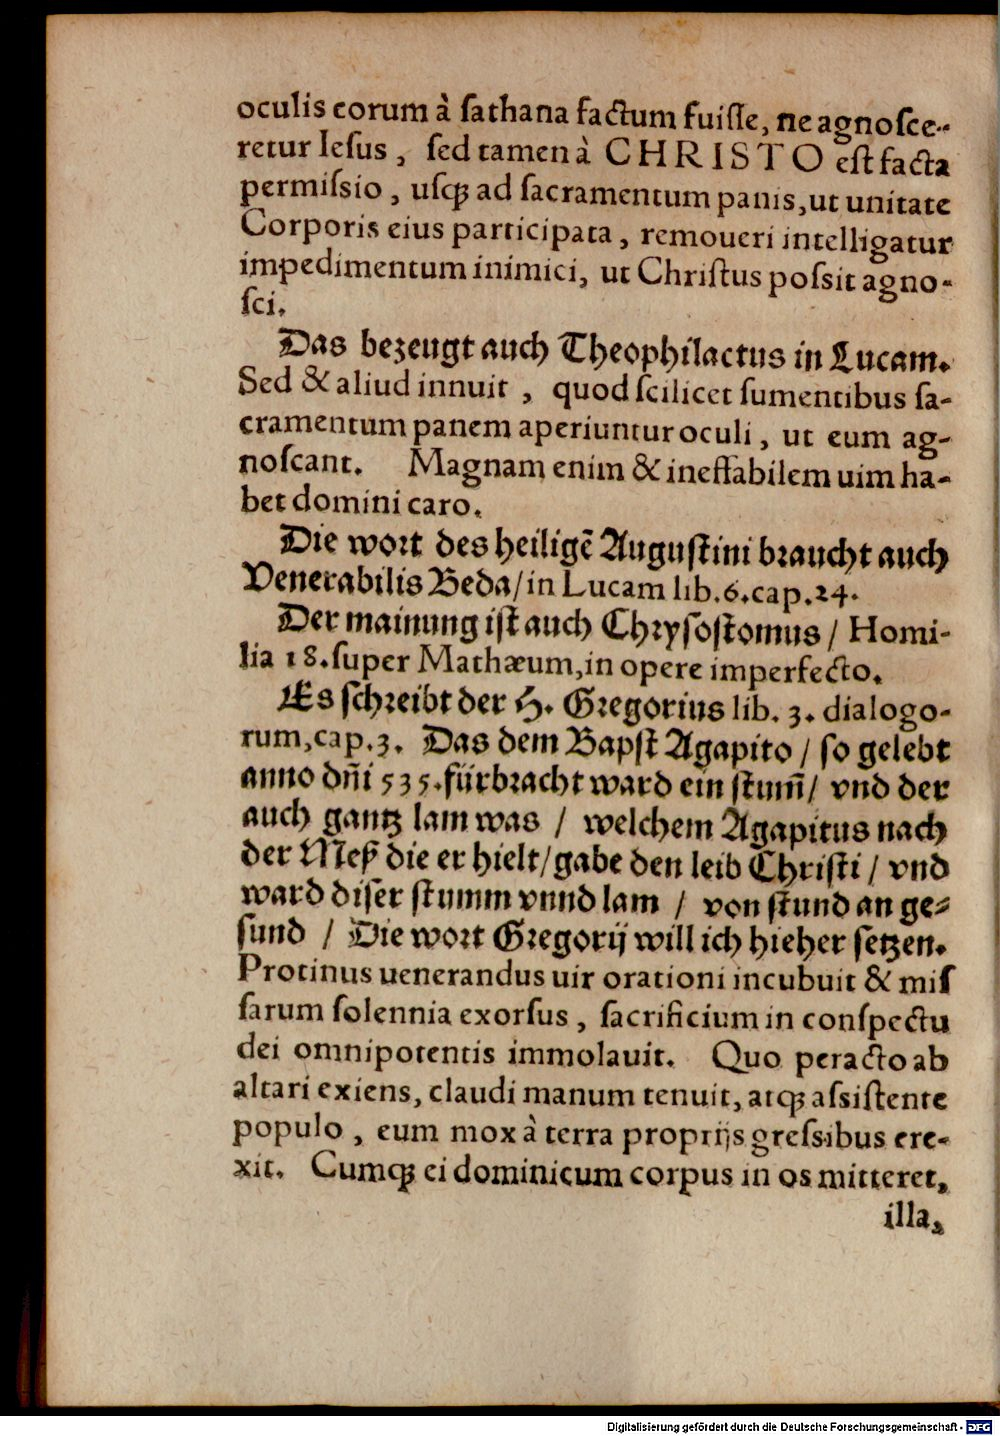 oculis eorum à ſathana factum fuiſſe, ne agnoſce-
retur Ieſus, ſed tamen à CHRISTO eſt facta
permiſsio, uſqꝫ ad ſacramentum panis, ut unitate
Corporis eius participata, remoueri intelligatur
impedimentum inimici, ut Chriſtus poſsit agno-
ſci.
Das bezeugt auch Theophilactus in Lucam.
Sed & aliud innuit, quod ſcilicet ſumentibus ſa-
cramentum panem aperiuntur oculi, ut eum ag-
noſcant. Magnam enim & ineffabilem uim ha-
bet domini caro.
Die wort des heiligẽ Auguſtini braucht auch
Venerabilis Beda/ in Lucam lib. 6. cap. 24.
Der mainung iſt auch Chryſoſtomus/ Homi-
lia 18. ſuper Mathæum, in opere imperfecto.
Es ſchreibt der H. Gregorius lib. 3. dialogo-
rum, cap. 3. Das dem Bapſt Agapito/ ſo gelebt
anno dñi 535. fürbracht ward ein ſtum̃/ vnd der
auch gantz lam was / welchem Agapitus nach
der Meß die er hielt/ gabe den leib Chriſti/ vnd
ward diſer ſtumm vnnd lam / von ſtund an ge⸗
ſund / Die wort Gregorij will ich hieher ſetzen.
Protinus uenerandus uir orationi incubuit & miſ
ſarum ſolennia exorſus, ſacrificium in conſpectu
dei omnipotentis immolauit. Quo peracto ab
altari exiens, claudi manum tenuit, atqꝫ aſsiſtente
populo, eum mox à terra proprijs greſsibus ere-
xit. Cumqꝫ ei dominicum corpus in os mitteret,
illa,
Digitalisierung gefördert durch die Deutsche Forschungsgemeinschaft - DFG